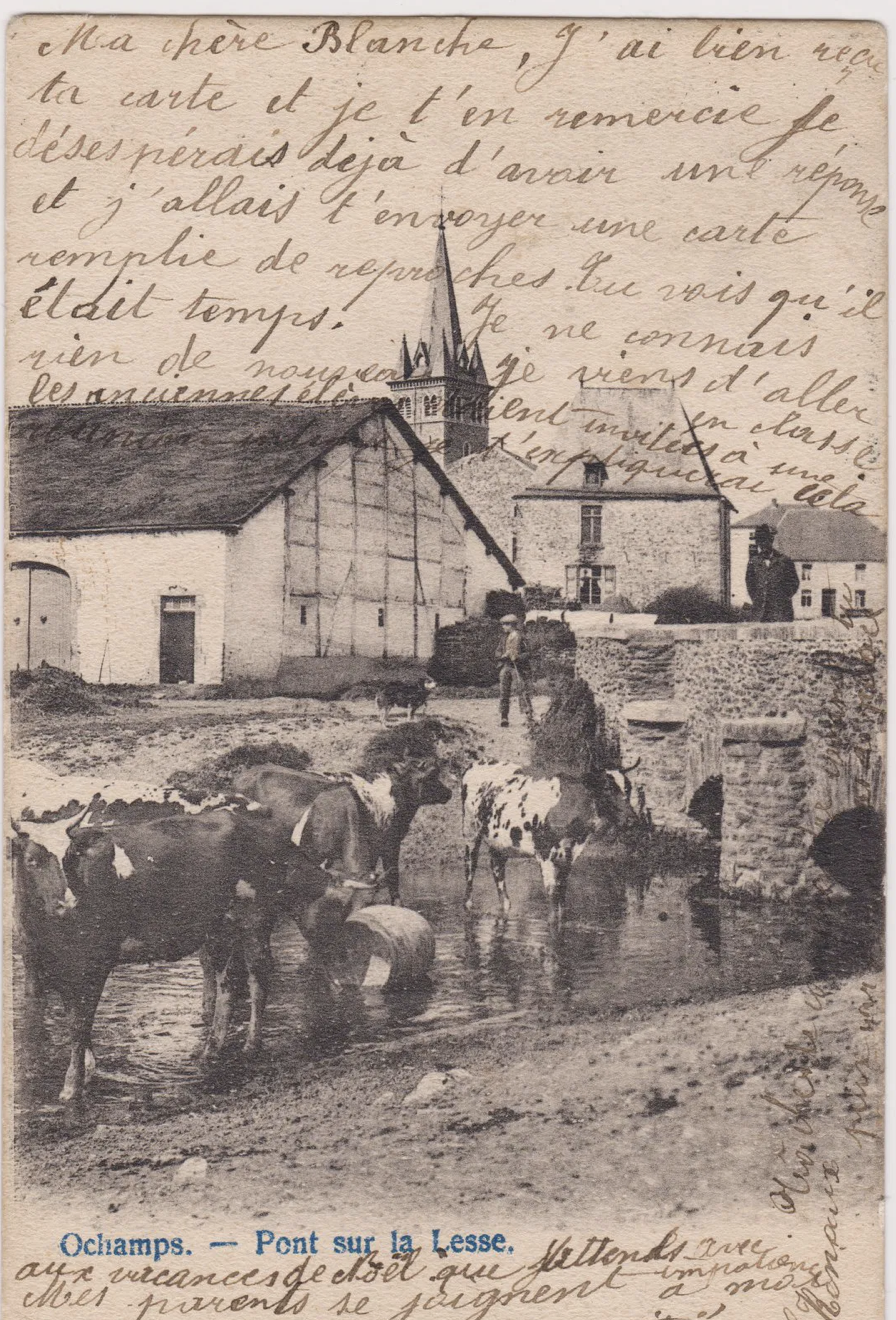 Ma chère Blanche, J'ai bien reçu
ta carte et je t'en remercie Je
désespérais dejà d'avoir une réponse
et j'allais t'envoyer une carte
remplie de reproches. Tu vois qu'il
était temps. Je ne connais
rien de nouveau je viens d'aller
en classe
les anciennes élèves étaient invitées à une
réunion je t'expliquerai cela
Ochamps. — Pont sur la Lesse.
aux vacances de Noël que j'attends avec
impatience
Mes parents se joignent à moi
pour